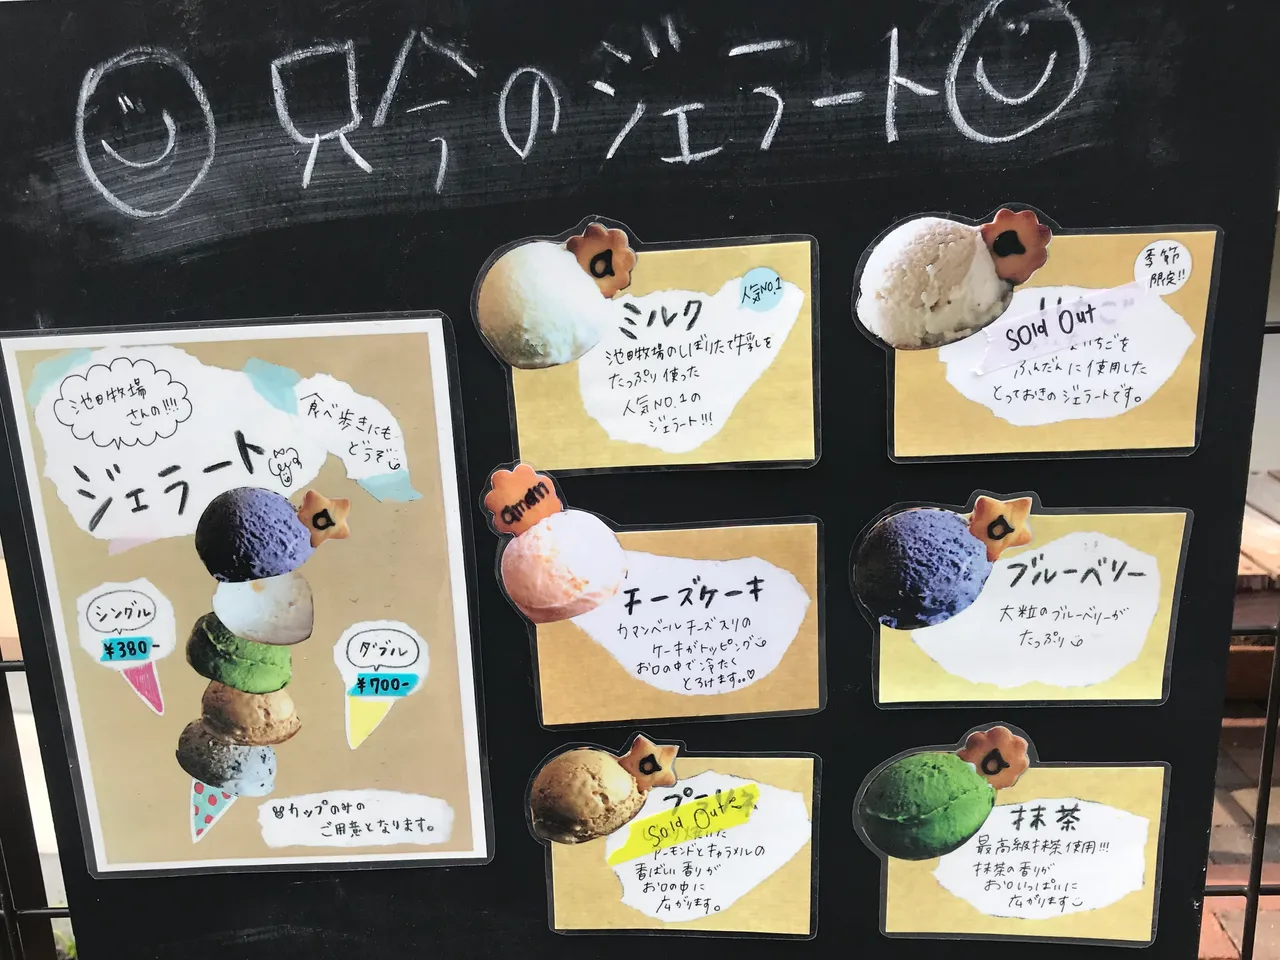 只今のジェラート
池田牧場
さんの!!!
食べ歩きにも
どうぞ
ジェラート
a
シングル
¥380-
ダブル
¥700-
カップのみの
ご用意となります。
a
人気NO.1
ミルク
池田牧場のしぼりたて牛乳を
たっぷり使った
人気NO.1の
ジェラート!!!
a
季節
限定!!
Sold Out
いちごを
ふんだんに使用した
とっておきのジェラートです。
aman
チーズケーキ
カマンベールチーズ入りの
ケーキがトッピング
お口の中で冷たく
とろけます。。♡
a
ブルーベリー
大粒のブルーベリーが
たっぷり
a
プラリネ
Sold Out
アーモンドとキャラメルの
香ばしい香りが
お口の中に
広がります。
a
抹茶
最高級抹茶使用!!!
抹茶の香りが
お口いっぱいに
広がります